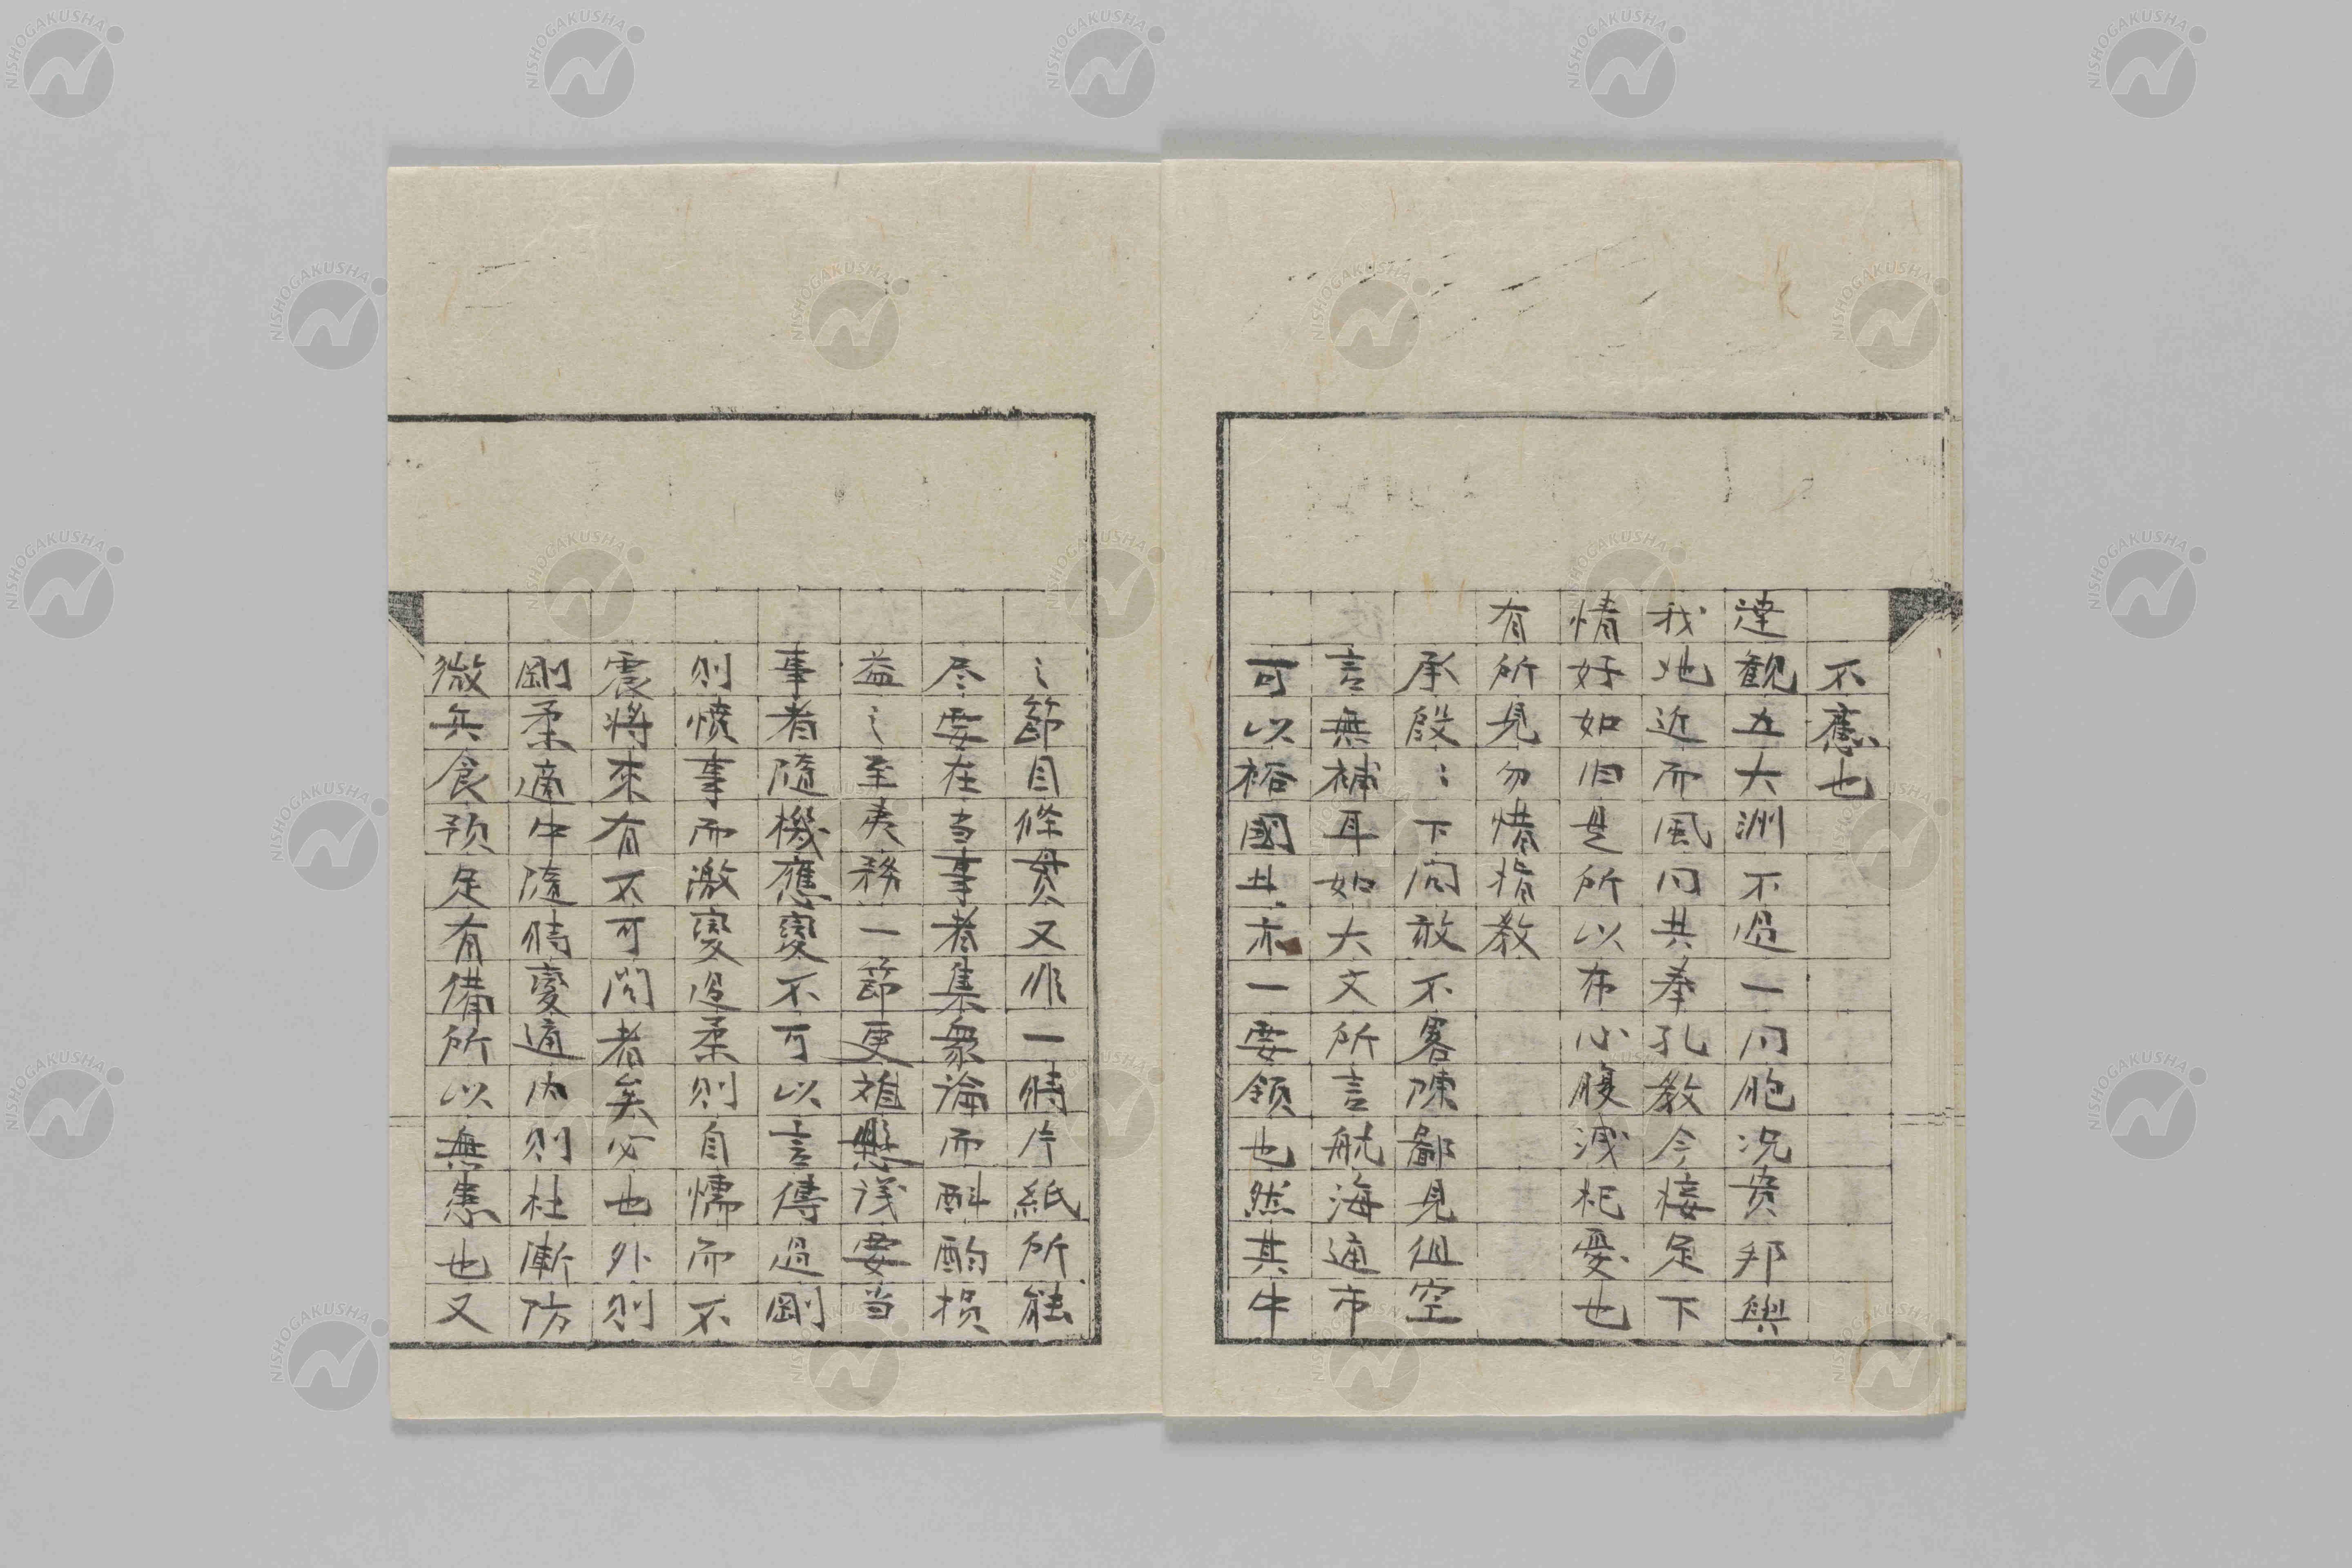 不應也
達観五大洲不過一同胞況貴邦與
我地近而風同共奉孔教今接足下
情好如旧是所以布心腹洩杞憂也
有所見勿惜指教
承殷〻下問敢不畧陳鄙見但空
言無補耳如大文所言航海通市
可以裕國廿亦一要領也然其中
之節目條貫又非一時片紙所能
尽要在当事者集衆論而斟酌損
益之至夷務一節更難懸議要当
事者隨機應變不可以言傳過剛
則憤事而激變過柔則自懦而不
震将來有不可問者矣必也外則
剛柔適中隨時變通内則杜漸防
微兵食預足有備所以無患也又
NISHOGAKUSHA